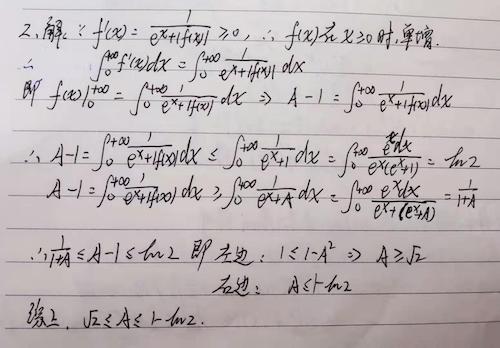 2. 解: ∵ f'(x) = 1/(e^x+|f(x)|) ≥ 0, ∴ f(x)在 x≥0 时, 单增.
∴ ∫₀^{+∞} f'(x)dx = ∫₀^{+∞} 1/(e^x+|f(x)|) dx
即 f(x)|₀^{+∞} = ∫₀^{+∞} 1/(e^x+|f(x)|) dx ⇒ A-1 = ∫₀^{+∞} 1/(e^x+|f(x)|) dx
∴ A-1 = ∫₀^{+∞} 1/(e^x+|f(x)|) dx ≤ ∫₀^{+∞} 1/(e^x+1) dx = ∫₀^{+∞} e^x dx/(e^x(e^x+1)) = ln2
A-1 = ∫₀^{+∞} 1/(e^x+|f(x)|) dx ≥ ∫₀^{+∞} 1/(e^x+A) dx = ∫₀^{+∞} e^x dx/(e^x+(e^x+A)) = 1/(1+A)
∴ 1/(1+A) ≤ A-1 ≤ ln2 即 左边: 1≤1-A² ⇒ A≥√2
右边: A≤1-ln2
综上, √2 ≤ A ≤ 1-ln2.